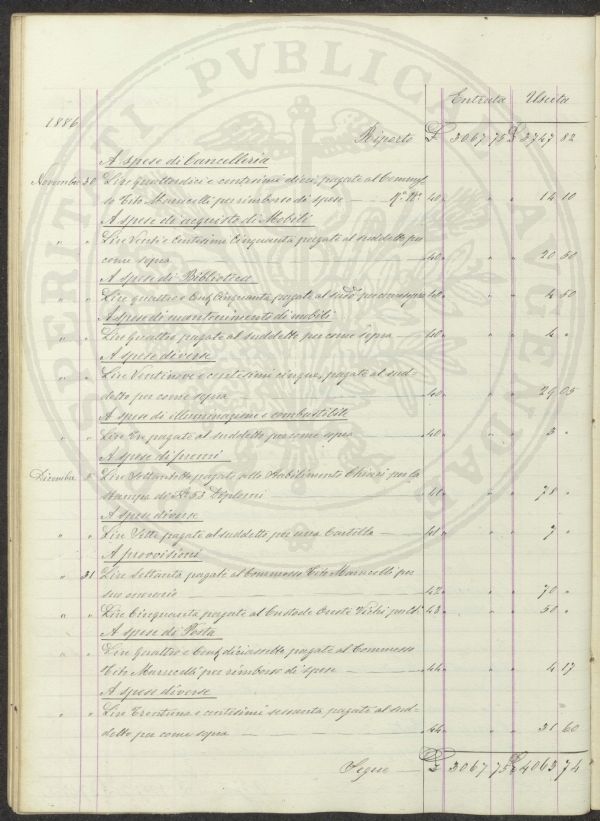 PROSPERITATI PUBLICAE AUGENDAE
Entrata Uscita
1886
Riporto £ 3067 75 £ 3747 82
A spese di Cancelleria
Novembre 30 Lire quattordici e centesimi dieci, pagate al Commes-
so Tito Marucelli per rimborso di spese — 40 " " 14 10
A spese di acquisto di Mobili
" " Lire Venti e Centesimi Cinquanta pagate al suddetto per
come sopra — 40 " " 20 50
A spese di Biblioteca
" " Lire quattro e Cent. Cinquanta, pagate al sudd.o per come sopra 40 " " 4 50
A spese di mantenimento di mobili
" " Lire Quattro pagate al suddetto per come sopra — 40 " " 4 "
A spese diverse
" " Lire Ventinove e centesimi cinque, pagate al sud-
detto per come sopra — 40 " " 29 05
A spese di illuminazione e combustibile
" " Lire Tre pagate al suddetto per come sopra — 40 " " 3 "
A spese di premi
Dicembre Lire Settantotto pagate allo Stabilimento Chiari per la
stampa di N.o 53 Diplomi — 41 " " 78 "
A spese diverse
" " Lire Sette pagate al suddetto per una Cartella — 41 " " 7 "
A provvisioni
" 31 Lire Settanta pagate al Commesso Tito Marucelli per
suo onorario — 42 " " 70 "
" " Lire Cinquanta, pagate al Custode Oreste 43 " " 50 "
A spese di Posta
" " Lire Quattro e Cent. diciassette, pagate al Commesso
Tito Marucelli per rimborso di spese — 44 " " 4 17
A spese diverse
" " Lire Trentuna e centesimi sessanta pagate al sud-
detto per come sopra — 44 " " 31 60
Segue — £ 3067 75 £ 4063 74